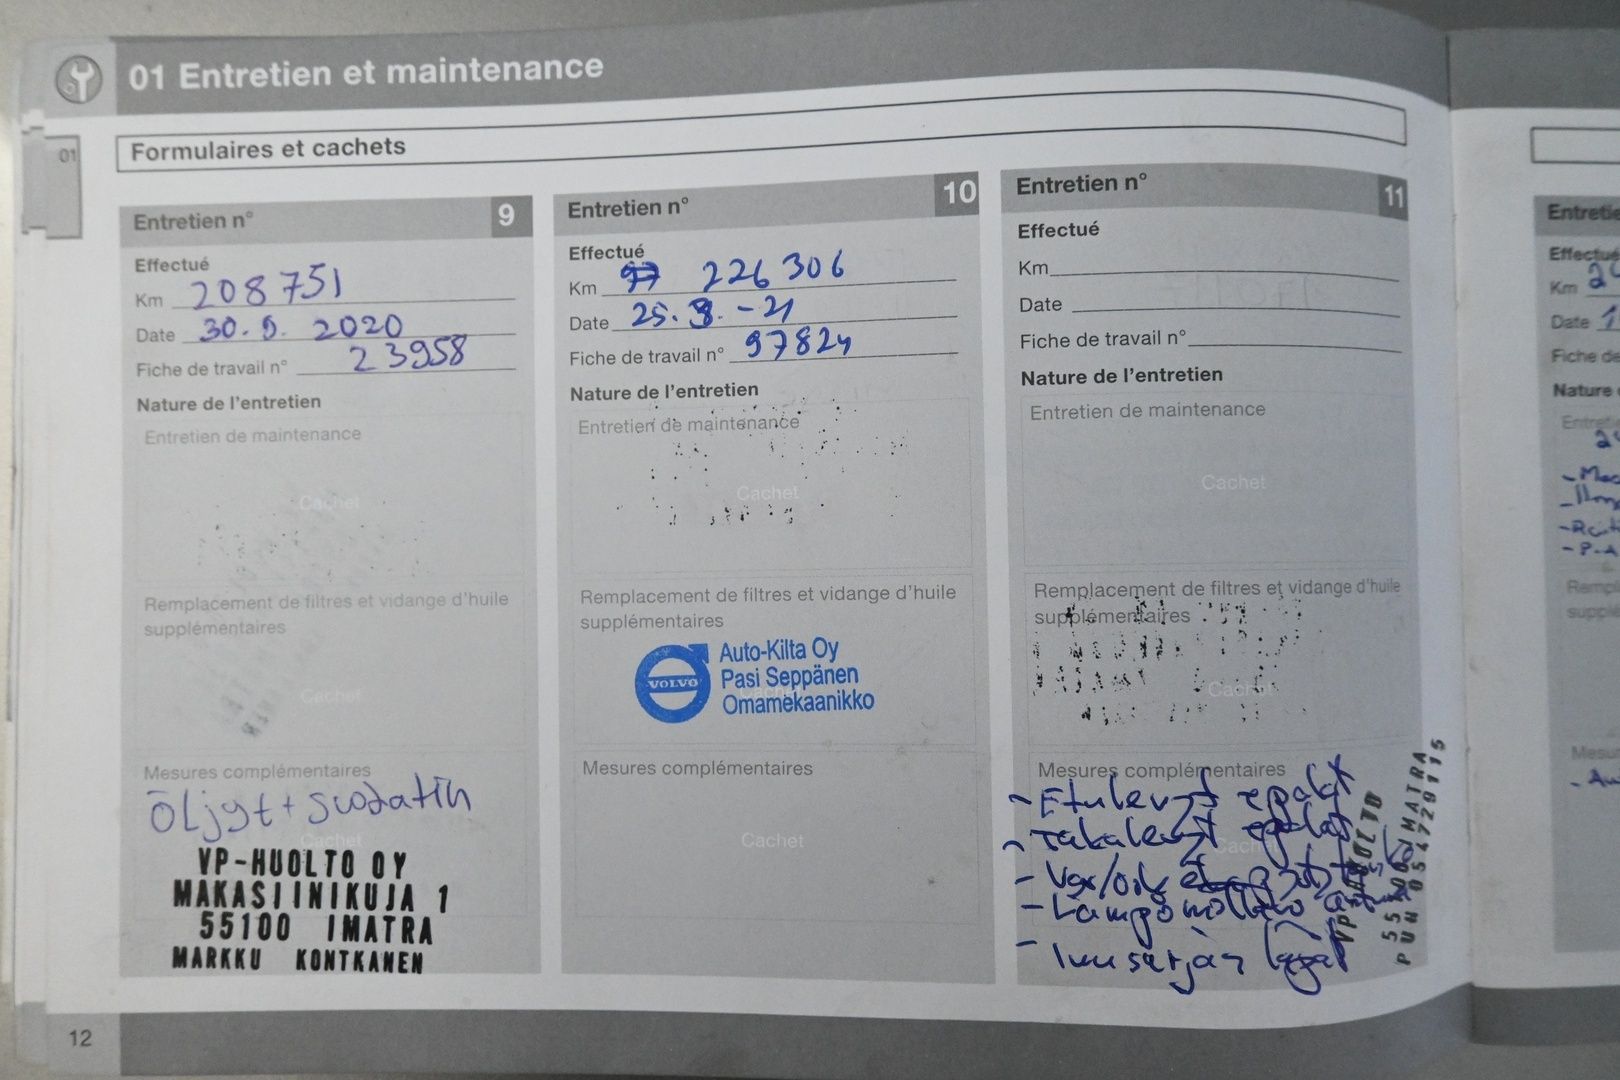 01 Entretien et maintenance
01
Formulaires et cachets
Entretien n° 9
Effectué
Km 208751
Date 30. 9. 2020
Fiche de travail n° 23958
Nature de l'entretien
Entretien de maintenance
Cachet
Remplacement de filtres et vidange d'huile
supplémentaires
Cachet
Mesures complémentaires
Öljyt + suodatin
Cachet
VP-HUOLTO OY
MAKASIINIKUJA 1
55100 IMATRA
MARKKU KONTKANEN
Entretien n° 10
Effectué
Km 226306
Date 25. 8. -21
Fiche de travail n° 97824
Nature de l'entretien
Entretien de maintenance
Cachet
Remplacement de filtres et vidange d'huile
supplémentaires
VOLVO
Auto-Kilta Oy
Pasi Seppänen
Omamekaanikko
Cachet
Mesures complémentaires
Cachet
Entretien n° 11
Effectué
Km
Date
Fiche de travail n°
Nature de l'entretien
Entretien de maintenance
Cachet
Remplacement de filtres et vidange d'huile
supplémentaires
Cachet
Mesures complémentaires
- Etulevyt + palat
- Takalevyt + palat
Cachet
- Vas/oik
- Lämpömittari
- Imusarjan
VP-HUOLTO
55100 IMATRA
PUH 054729115
Entretie
Effectué
Km 2
Date 1
Fiche de
Nature
Entret
Rempl
supplé
Mesur
12